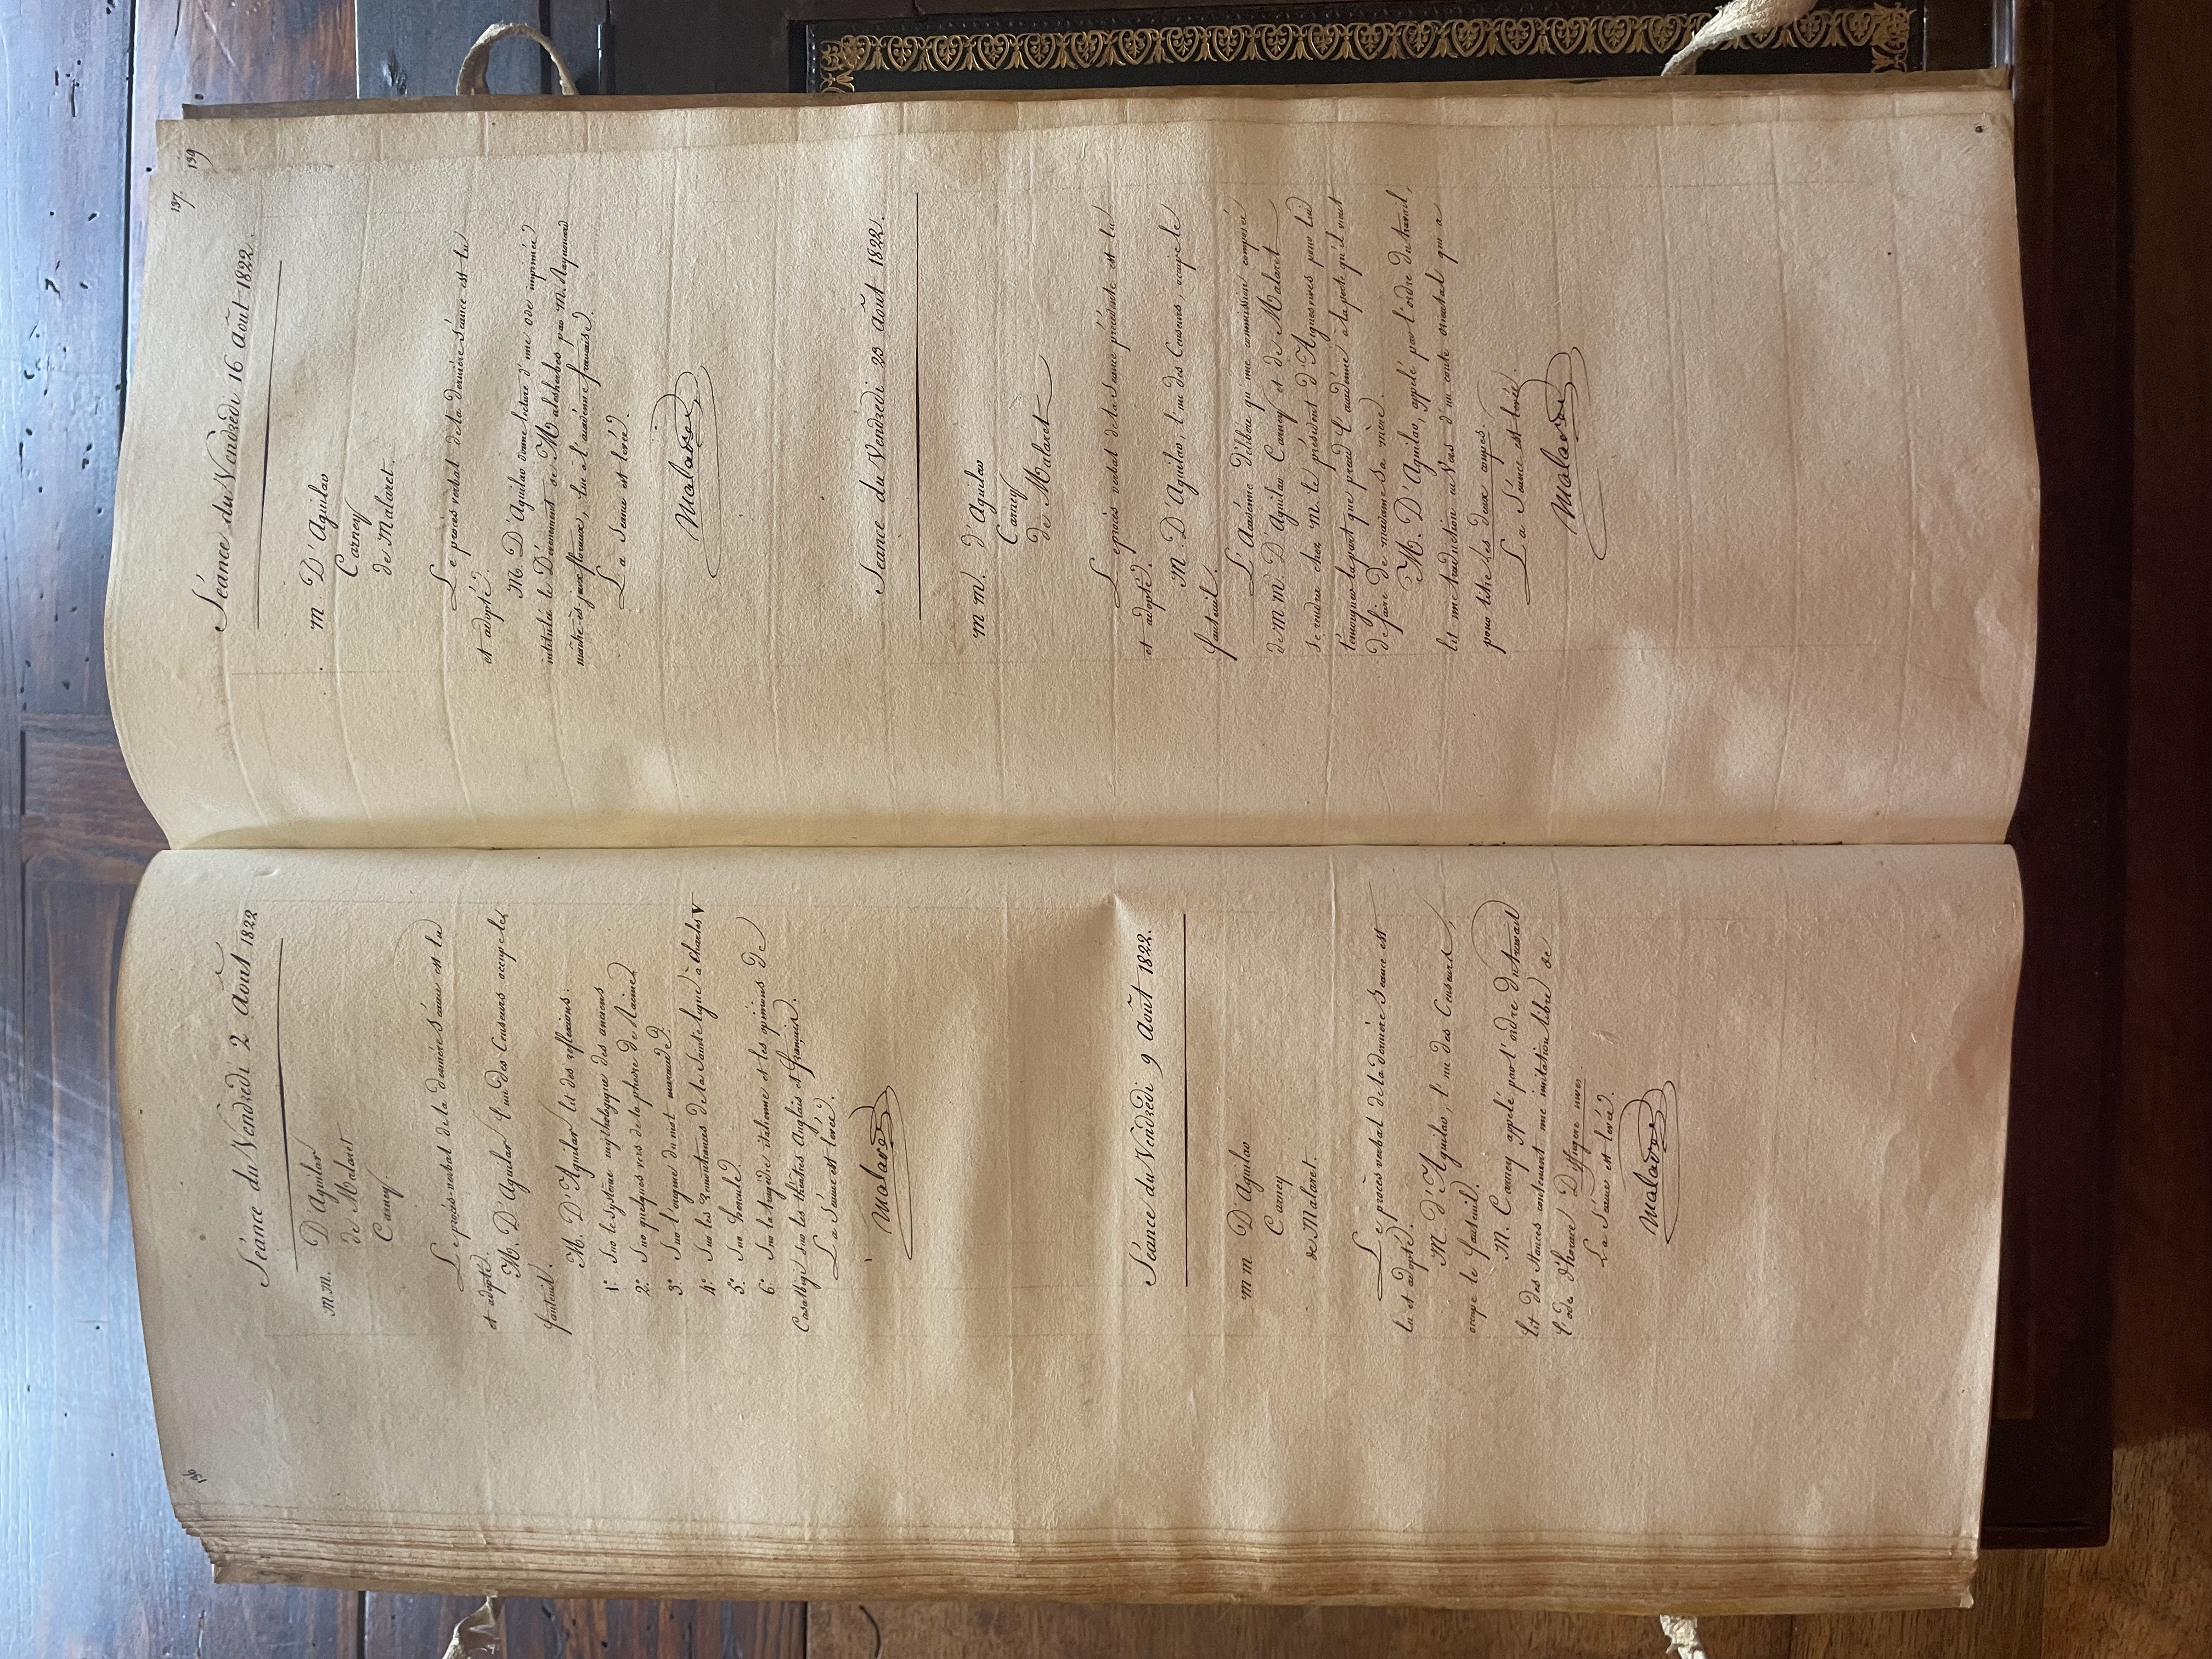 136
Séance du Vendredi 2 Août 1822
m.m. D'Aguilar
de Malaret
Carney
Le procès-verbal de la dernière séance est lu
et adopté.
M. D'Aguilar l'un des Censeurs occupe le
fauteuil.
M. D'Aguilar lit des reflexions.
1.° Sur le système mythologique des anciens
2.° Sur quelques vers de la phedre de Racine
3.° Sur l'origine du mot maraude
4.° Sur les Remontrances de la Sainte ligue à Charles V
5.° Sur hercule.
6.° Sur la tragédie italienne et les opinions de
Casalbigi sur les théâtres Anglais et français.
La Séance est levée.
Malaret
Séance du Vendredi 9 Août 1822.
m m D'Aguilar
Carney
de Malaret.
Le procès verbal de la dernière Séance est
lu et adopté.
M. D'Aguilar, l'un des Censeurs,
occupe le fauteuil.
M. Carney appelé par l'ordre du travail
lit des Stances contenant une imitation libre de
l'ode d'horace Diffugere nives.
La Séance est levée.
Malaret
137.
139
Séance du Vendredi 16 Août 1822.
m. D'Aguilar
Carney
de Malaret.
Le procès verbal de la dernière séance est lu
et adopté.
M. D'Aguilar donne lecture d'une ode imprimée
intitulée le Dévouement de Malesherbes par M. Raynouard
maître ès jeux floraux, lue à l'académie française.
La Séance est levée.
Malaret
Séance du Vendredi 23 Août 1822.
m m. d'Aguilar
Carney
de Malaret
Le procès verbal de la Séance précédente est lu
et adopté.
M. D'Aguilar, l'un des Censeurs, occupe le
fauteuil.
L'Académie délibère qu'une commission composée
de m m. D'Aguilar Carney et de Malaret
se rendra chez M. le président d'Aiguesvives pour lui
témoigner la part que prend l'académie à la perte qu'il vient
de faire de madame sa mère.
M. D'Aguilar, appelé par l'ordre du travail,
lit une traduction en Vers d'un conte oriental qui a
pour titre les deux anges.
La Séance est levée.
Malaret